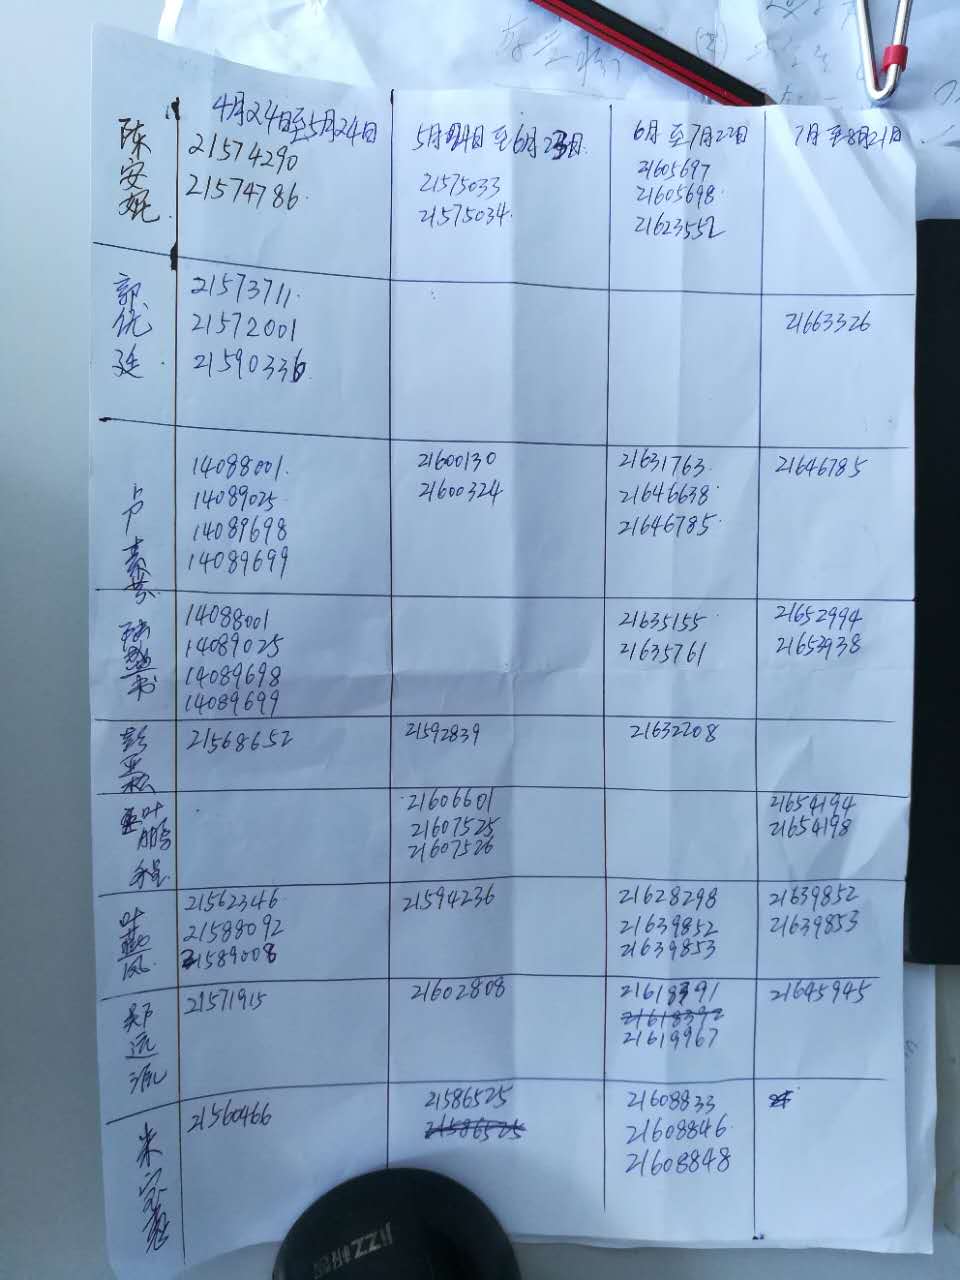 4月24日至5月24日
5月24日至6月23日
6月至7月22日
7月至8月21日
陈安妮
21574290
21574786
21575033
21575034
21605697
21605698
21623552
郭优廷
21573711
21572001
21590336
21663326
卢素芬
14088001
14089025
14089698
14089699
21600130
21600324
21631763
21646638
21646785
21646785
14088001
14089025
14089698
14089699
21635155
21635761
21652994
21652938
彭亚松
21568652
21592839
21632208
叶鹏程
21606601
21607525
21607526
21654194
21654198
叶
凤
21562346
21588092
21589008
21594236
21628298
21639852
21639853
21639852
21639853
郑远派
21571915
21602808
21618391
21618392
21619967
21645945
21560466
21586525
21586525
21608833
21608846
21608848